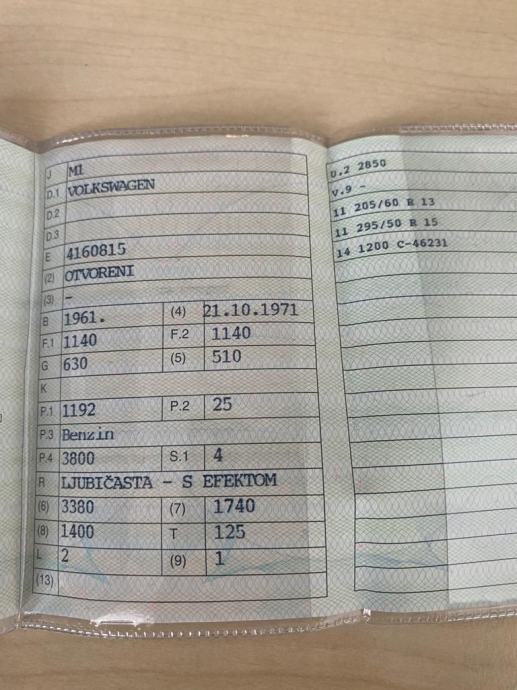 J M1
D.1 VOLKSWAGEN
D.2
D.3
E 4160815
(2) OTVORENI
(3) -
B 1961. (4) 21.10.1971
F.1 1140 F.2 1140
G 630 (5) 510
K
P.1 1192 P.2 25
P.3 Benzin
P.4 3800 S.1 4
R LJUBIČASTA - S EFEKTOM
(6) 3380 (7) 1740
(8) 1400 T 125
L 2 (9) 1
(13)
U.2 2850
V.9 -
11 205/60 R 13
11 295/50 R 15
14 1200 C-46231